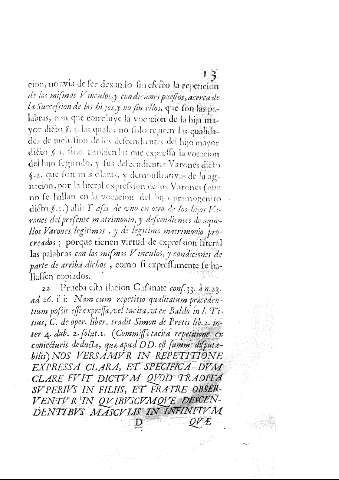 13
cion, no avia de ser dexando sin efecto la repeticion
de los mismos Vinculos, y condiciones puestos, acerca de
la Succession de los hijos, y no sin ellos, que son las pa-
labras, con que concluye la vocacion de la hija ma-
yor dicto §. 1. las quales no solo repiten las qualida-
des de inclusion de los descendientes del hijo mayor
dicto §. 1. sino tambien las que expressa la vocacion
del hijo segundo, y sus descendientes Varones dicto
§. 2. que son mas claras, y demonstrativas de la ag-
nacion, por la literal expression de los Varones (que
no se hallan en la vocacion del hijo primogenito
dicto §. 1.) ibi: Y assi de uno en otro de los hijos Va-
rones del presente matrimonio, y descendientes de aque-
llos Varones legitimos, y de legitimo matrimonio pro-
creados; porque tienen virtud de expression literal
las palabras con los mismos Vinculos, y condiciones de
parte de arriba dichos, como si expressamente se ha-
llassen copiados.
22 Prueba esta ilacion Casanate cons. 33. à n. 23.
ad 26. ibi: Nam cum repetitio qualitatum præceden-
tium possit esse expressa, vel tacita, ut ex Baldo in l. Ti-
tius, C. de oper. liber. tradit Simon de Pretis lib. 2. in-
ter 4. dub. 2. solut. 1. (Commissi tacita repetitione ex
coniecturis deducta, qua apud DD. est summè disputa-
bilis) NOS VERSAMUR IN REPETITIONE
EXPRESSA CLARA, ET SPECIFICA DUM
CLARE FUIT DICTUM QUOD TRADITA
SUPERIUS IN FILIIS, ET FRATRE OBSER-
VENTUR IN QUIBUSCUMQUE DESCEN-
DENTIBUS MASCULIS IN INFINITUM
D QUÆ